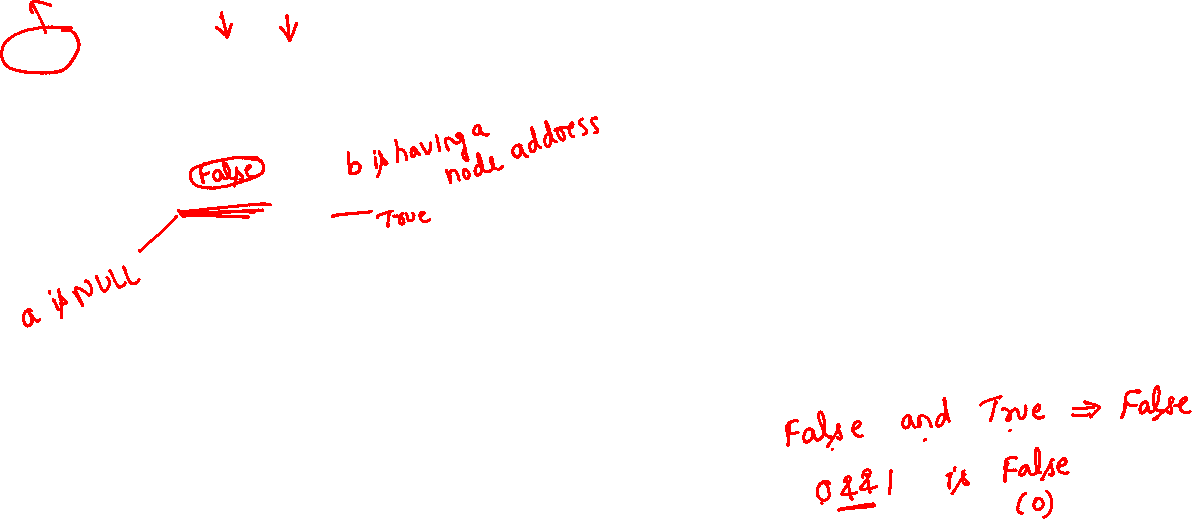 False
b is having a
node address
True
a is NULL
False and True ⇒ False
0 && 1 is False
(0)